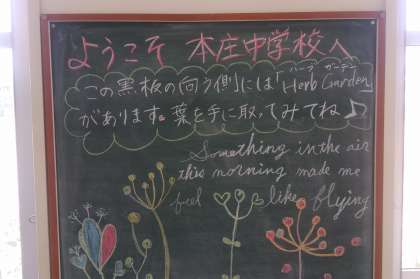 ようこそ 本庄中学校へ
ハーブ ガーデン
この黒板の向う側には「Herb Garden」
があります。葉を手に取ってみてね♪
Something in the air
this morning made me
feel like flying